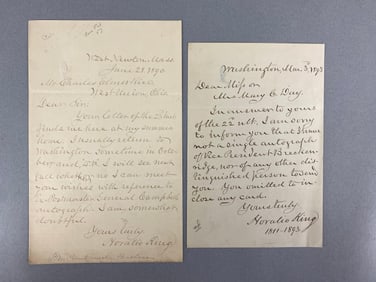 West Newton, Mass
June 23. 1890
Mr. Charles
West
Dear Sir:
Your letter of the 21st
finds me here at my summer
home. I usually return to
Washington sometime in Octo-
ber and, 5th I will see next
fall whether or no I can meet
your wishes with reference to
Postmaster General Campbell
autograph. I am somewhat
doubtful.
Yours truly
Horatio King
Washington, Mar. 3, 1893
Dear Miss or
Mrs. Mary C. Day.
In answer to yours
of the 22d ult. I am sorry
to inform you that I have
not a single autograph
of Vice President Brecken-
ridge, nor of any other dis-
tinguished person to send
you. You omitted to in-
close any card.
Yours truly
Horatio King
1811-1893